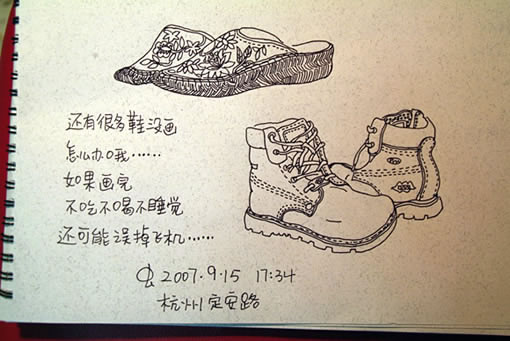 还有很多鞋没画
怎么办哦……
如果画完
不吃不喝不睡觉
还可能误掉飞机……
2007.9.15 17:34
杭州定安路